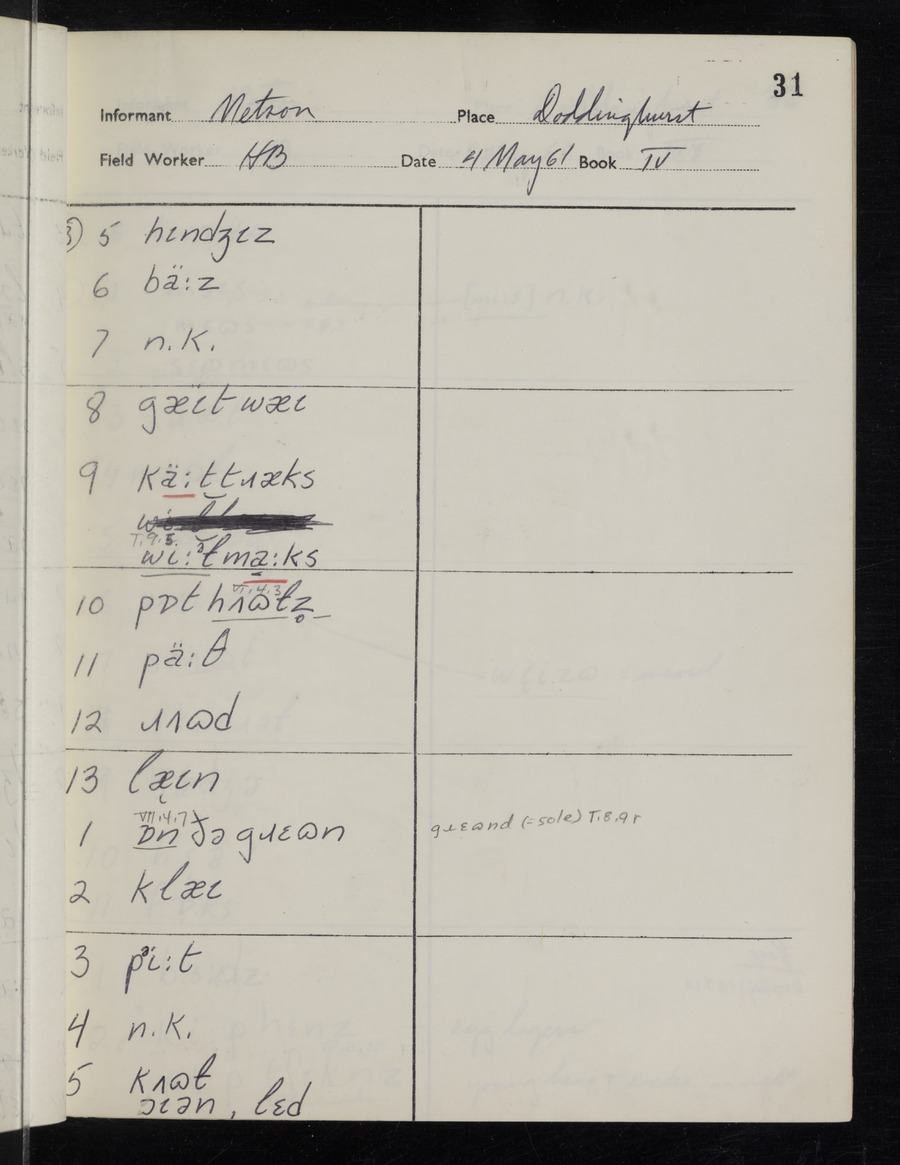 31
Informant Metson Place Doddinghurst
Field Worker HB Date 4 May 61 Book IV
3) 5 hɩndʒɩz
6 bä:z
7 n.k.
8 gæɩt wæɩ
9 kä:t tɹæks
T.9.5.
wɩ:ᵊɫ ma:ks
VI.4.3
10 pɒt hʌɷɫz̥
11 pä:θ
12 ɹʌɷd
13 læɩn
VII.4.7
1 ɒn ðə gɹɛɷn gɹɛɷnd (=sole) T.8.9r
2 klæɩ
3 pᵊi:t
4 n.k.
5 kʌɷɫ
ɔɩən, lɛd